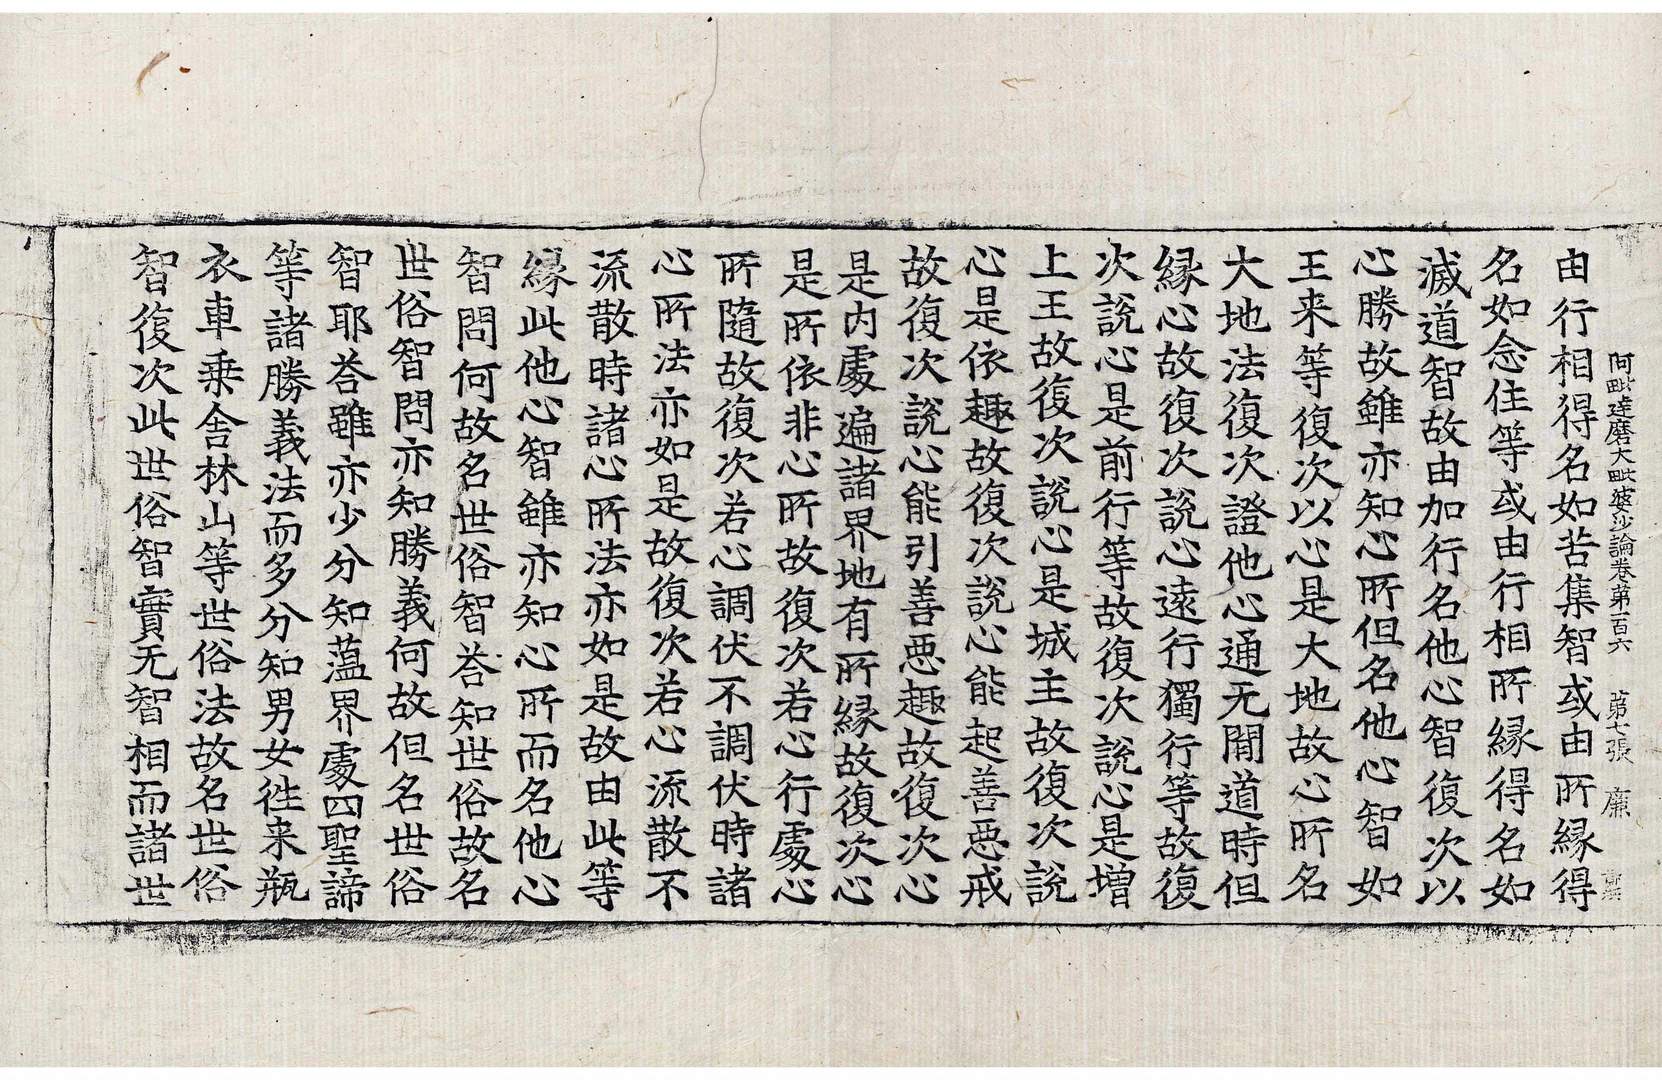 阿毗達磨大毗婆沙論卷第一百六 第七張 廉
由行相得名如苦集智或由所緣得
名如念住等或由行相所緣得名如
滅道智故由加行名他心智復次以
心勝故雖亦知心所但名他心智如
王来等復次以心是大地故心所名
大地法復次證他心通无閒道時但
緣心故復次說心遠行獨行等故復
次說心是前行等故復次說心是增
上王故復次說心是城主故復次說
心是依趣故復次說心能起善惡戒
故復次說心能引善惡趣故復次心
是內處遍諸界地有所緣故復次心
是所依非心所故復次若心行處心
所隨故復次若心調伏不調伏時諸
心所法亦如是故復次若心流散不
流散時諸心所法亦如是故由此等
緣此他心智雖亦知心所而名他心
智問何故名世俗智荅知世俗故名
世俗智問亦知勝義何故但名世俗
智耶荅雖亦少分知薀界處四聖諦
等諸勝義法而多分知男女徃来瓶
衣車乗舎林山等世俗法故名世俗
智復次此世俗智實无智相而諸世